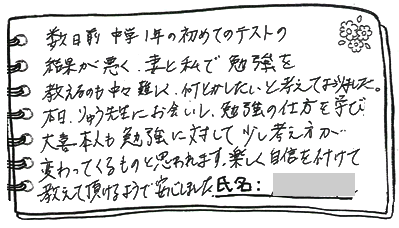 数日前 中学1年の初めてのテストの
結果が悪く、妻と私で勉強を
教えるのも中々難しく、何とかしたいと考えておりました。
本日、りゅう先生にお会いし、勉強の仕方を学び
大喜本人も勉強に対して少し考え方が
変わってくるものと思われます。楽しく自信を付けて
教えて頂けるようで安心しました。氏名：